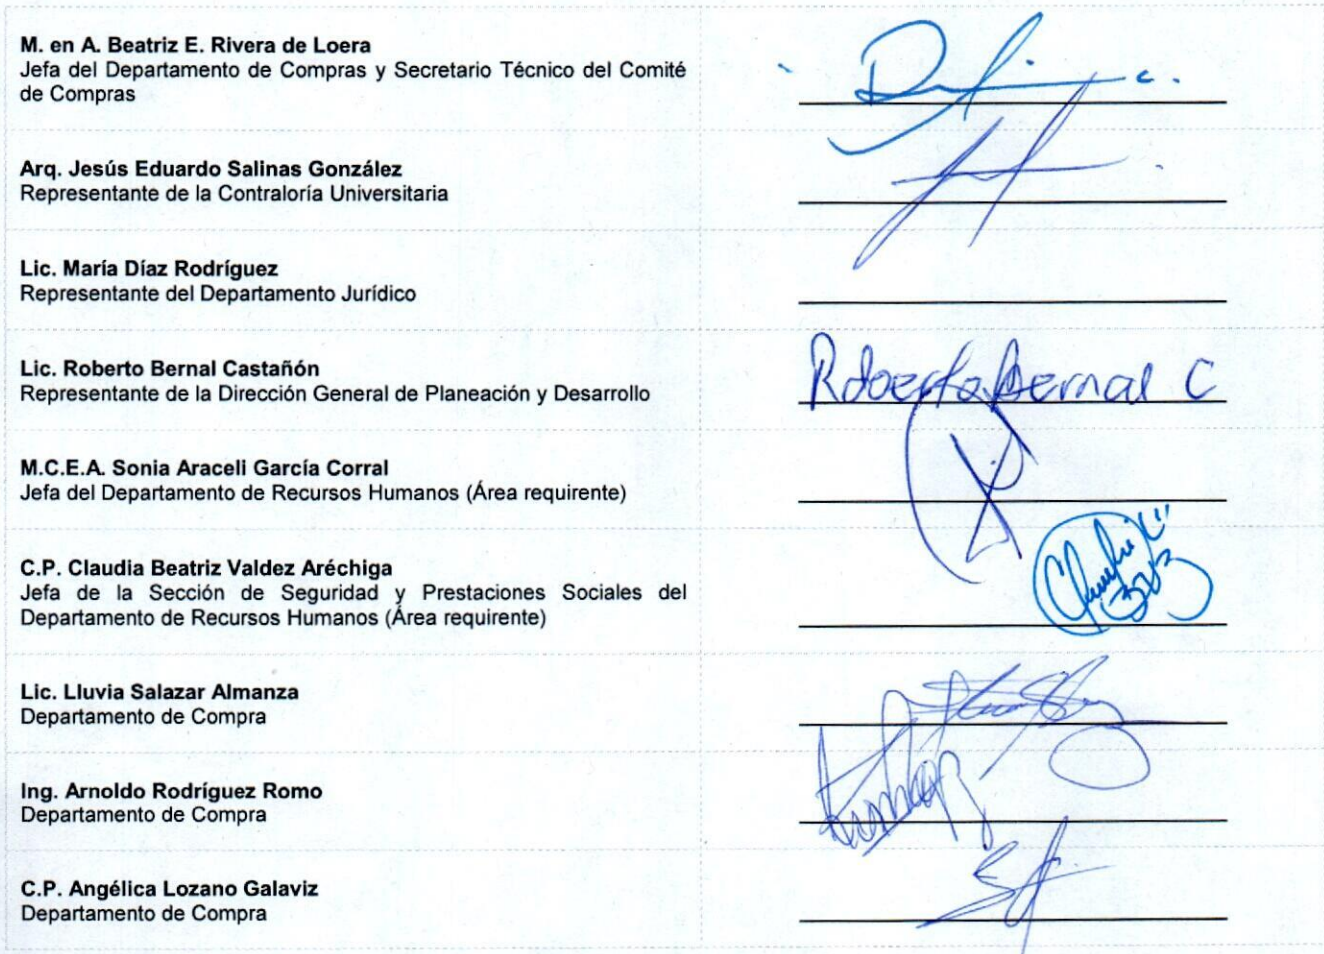 M. en A. Beatriz E. Rivera de Loera
Jefa del Departamento de Compras y Secretario Técnico del Comité
de Compras
Arq. Jesús Eduardo Salinas González
Representante de la Contraloría Universitaria
Lic. María Díaz Rodríguez
Representante del Departamento Jurídico
Lic. Roberto Bernal Castañón
Representante de la Dirección General de Planeación y Desarrollo
Roberto Bernal C
M.C.E.A. Sonia Araceli García Corral
Jefa del Departamento de Recursos Humanos (Área requirente)
C.P. Claudia Beatriz Valdez Aréchiga
Jefa de la Sección de Seguridad y Prestaciones Sociales del
Departamento de Recursos Humanos (Área requirente)
Lic. Lluvia Salazar Almanza
Departamento de Compra
Ing. Arnoldo Rodríguez Romo
Departamento de Compra
C.P. Angélica Lozano Galaviz
Departamento de Compra